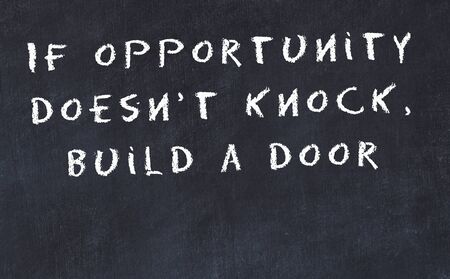 IF OPPORTUNITY
DOESN'T KNOCK,
BUILD A DOOR